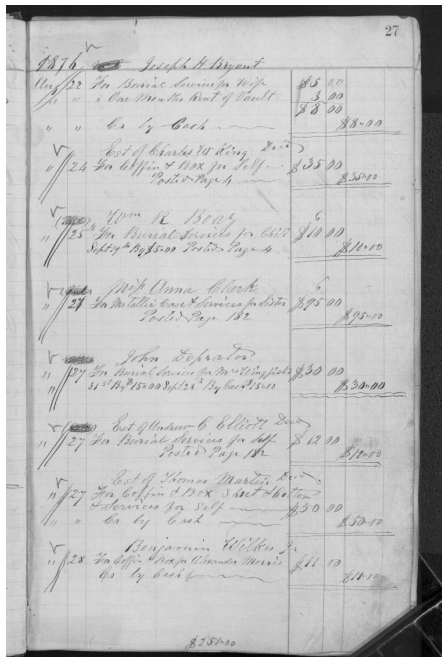 27
1876 Joseph H Bryant
Aug 22 For Burial Services for Wife $5 00
" " " One Months Rent of Vault 3 00
$8 00
" " Cr by Cash $8-00
Est of Charles W King Decd
" 24 For Coffin & Box for Self $35 00
Posted Page 4 $35-00
Wm R Boaz
" 25 For Burial Services for Child $10 00
Sept 19th By $5-00 Posted Page 4 $10-00
Miss Anna Clark
" 27 For Metallic Case & Services for Sister $95 00
Posted Page 182 $95-00
John
" 27 For Burial Services for Mrs Wingfield $30 00
31st By $15-00 Sept 28th By Cash $15-00 $30-00
Est of Andrew C Elliott Decd
" 27 For Burial Services for Self $12 00
Posted Page 182 $12-00
Est of Thomas Martin Decd
" 27 For Coffin & Box Sheet & Cotton
& Services for Self $50 00
" " Cr by Cash $50-00
Benjamin Wilkes Jr
" 28 For Coffin & Box for Alexander Morris $11 00
Cr by Cash $11-00
$251-00